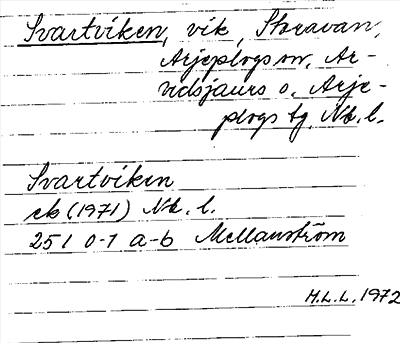 Svartviken, vik, Storavan,
Arjeplogs sn, Ar-
vidsjaurs o. Arje-
plogs tg, Nb. l.
Svartviken
ek (1971) Nb. l.
251 0-1 a-b Mellanström
H.L.L. 1972